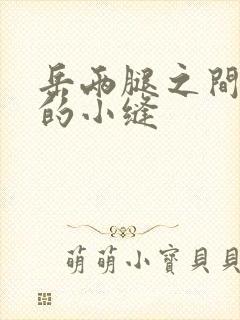 岳两腿之間
的小缝
萌萌小寶貝貝